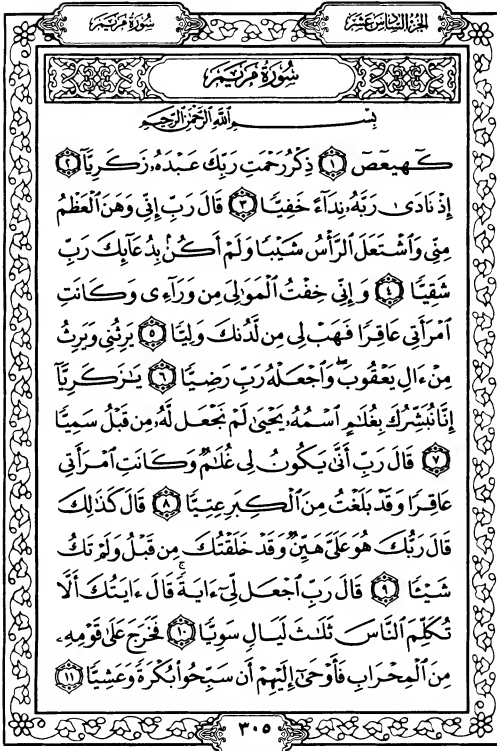 الجزء السادس عشر
سورة مريم
سُورَةُ مَرْيَمَ
بِسْمِ اللَّهِ الرَّحْمَٰنِ الرَّحِيمِ
كٓهيعٓصٓ ١ ذِكْرُ رَحْمَتِ رَبِّكَ عَبْدَهُۥ زَكَرِيَّآ ٢
إِذْ نَادَىٰ رَبَّهُۥ نِدَآءً خَفِيًّا ٣ قَالَ رَبِّ إِنِّي وَهَنَ ٱلْعَظْمُ
مِنِّي وَٱشْتَعَلَ ٱلرَّأْسُ شَيْبًا وَلَمْ أَكُنۢ بِدُعَآئِكَ رَبِّ
شَقِيًّا ٤ وَإِنِّي خِفْتُ ٱلْمَوَٰلِيَ مِن وَرَآءِي وَكَانَتِ
ٱمْرَأَتِي عَاقِرًا فَهَبْ لِي مِن لَّدُنكَ وَلِيًّا ٥ يَرِثُنِي وَيَرِثُ
مِنْ ءَالِ يَعْقُوبَ ۖ وَٱجْعَلْهُ رَبِّ رَضِيًّا ٦ يَٰزَكَرِيَّآ
إِنَّا نُبَشِّرُكَ بِغُلَٰمٍ ٱسْمُهُۥ يَحْيَىٰ لَمْ نَجْعَل لَّهُۥ مِن قَبْلُ سَمِيًّا
٧ قَالَ رَبِّ أَنَّىٰ يَكُونُ لِي غُلَٰمٌ وَكَانَتِ ٱمْرَأَتِي
عَاقِرًا وَقَدْ بَلَغْتُ مِنَ ٱلْكِبَرِ عِتِيًّا ٨ قَالَ كَذَٰلِكَ
قَالَ رَبُّكَ هُوَ عَلَيَّ هَيِّنٌ وَقَدْ خَلَقْتُكَ مِن قَبْلُ وَلَمْ تَكُ
شَيْـًٔا ٩ قَالَ رَبِّ ٱجْعَل لِّيٓ ءَايَةً ۚ قَالَ ءَايَتُكَ أَلَّا
تُكَلِّمَ ٱلنَّاسَ ثَلَٰثَ لَيَالٍ سَوِيًّا ١٠ فَخَرَجَ عَلَىٰ قَوْمِهِۦ
مِنَ ٱلْمِحْرَابِ فَأَوْحَىٰٓ إِلَيْهِمْ أَن سَبِّحُوا۟ بُكْرَةً وَعَشِيًّا ١١
٣٠٥